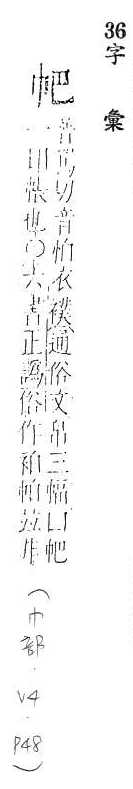 36字彙
帊
普駕切音怕衣襆通俗文帛三幅曰帊
一曰帳也○六書正譌俗作袙帕非
(巾部.V4.P48)